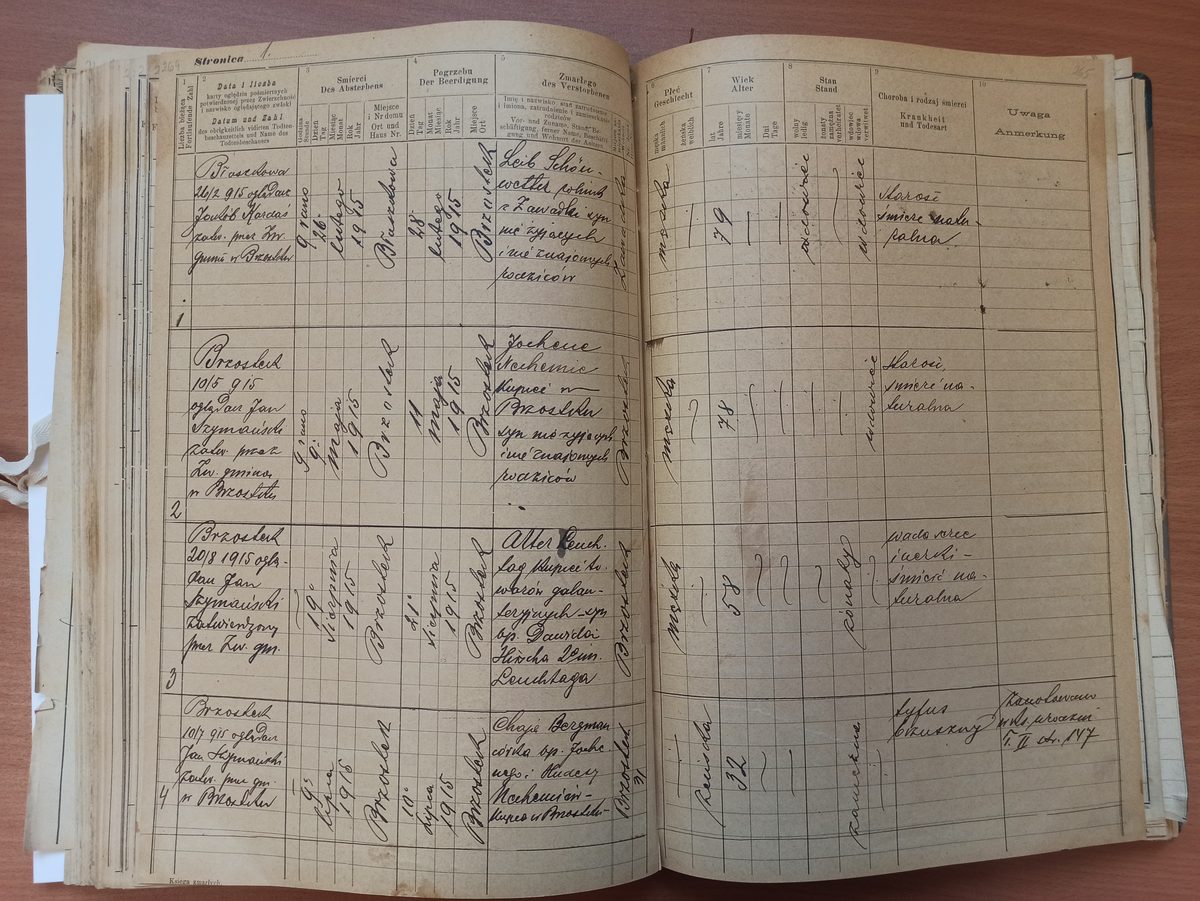 Stronica 1.
1
Liczba bieżąca
Fortlaufende Zahl
2
Data i liczba
karty oględzin pośmiertnych
potwierdzonej przez Zwierzchność
i nazwisko oglądającego zwłoki
Datum und Zahl
des obrigkeitlich vidirten Todten-
beschauzettels und Name des
Todtenbeschauers
3
Śmierci
Des Absterbens
Godzina
Stunde
Dzień
Tag
Miesiąc
Monat
Rok
Jahr
Miejsce
i Nr domu
Ort und
Haus Nr.
4
Pogrzebu
Der Beerdigung
Dzień
Tag
Miesiąc
Monat
Rok
Jahr
Miejsce
Ort
5
Zmarłego
des Verstorbenen
Imię i nazwisko, stan, zatrudnienie
i imiona, zatrudnienie i zamieszkanie
rodziców
Vor- und Zuname, Stand, Be-
schäftigung, ferner Name, Beschäfti-
gung und Wohnort der Aeltern
6
Płeć
Geschlecht
męska
männlich
żeńska
weiblich
7
Wiek
Alter
lat
Jahre
miesięcy
Monate
Dni
Tage
8
Stan
Stand
wolny
ledig
żonaty
zamężna
verheiratet
wdowiec
wdowa
verwitwet
9
Choroba i rodzaj śmierci
Krankheit
und Todesart
10
Uwaga
Anmerkung
1
26/2 915 oglądacz
Jakób
zatw. przez Zw.
gminy w Brzostku
9 rano
26
lutego
1915
28
lutego
1915
Brzostek
Leib Schön-
wetter rolnik
z Zawadki syn
nie żyjących
i nie znajomych
rodziców
Zawadka
męska
79
wdowiec
wdowiec
starość
śmierć natu-
ralna
2
Brzostek
10/5 915
oglądacz Jan
Szymański
zatw. przez
Zw. gminne
w Brzostku
9 rano
9
maja
1915
Brzostek
11
maja
1915
Brzostek
Nechemie
kupiec w
Brzostku
syn nie żyjących
i nie znajomych
rodziców
Brzostek
męska
78
wdowiec
starość,
śmierć na-
turalna
3
Brzostek
20/8 1915 oglą-
dacz Jan
Szymański
zatwierdzony
przez Zw. gm.
19
sierpnia
1915
Brzostek
21
sierpnia
1915
Brzostek
Alter Leuch-
tag kupiec to-
warów galan-
teryjnych syn
śp. Dawida
Hirscha
Leuchtaga
Brzostek
męska
58
żonaty
śmierć na-
turalna
4
Brzostek
10/7 915 oglądacz
Jan Szymański
zatw. przez gm.
w Brzostku
9
lipca
1915
Brzostek
10
lipca
1915
Brzostek
Chaje Bergman
córka śp.
kupca w Brzostku
Brzostek
31
żeńska
32
zamężna
tyfus
brzuszny
T. II str. 147
Księga zmarłych.